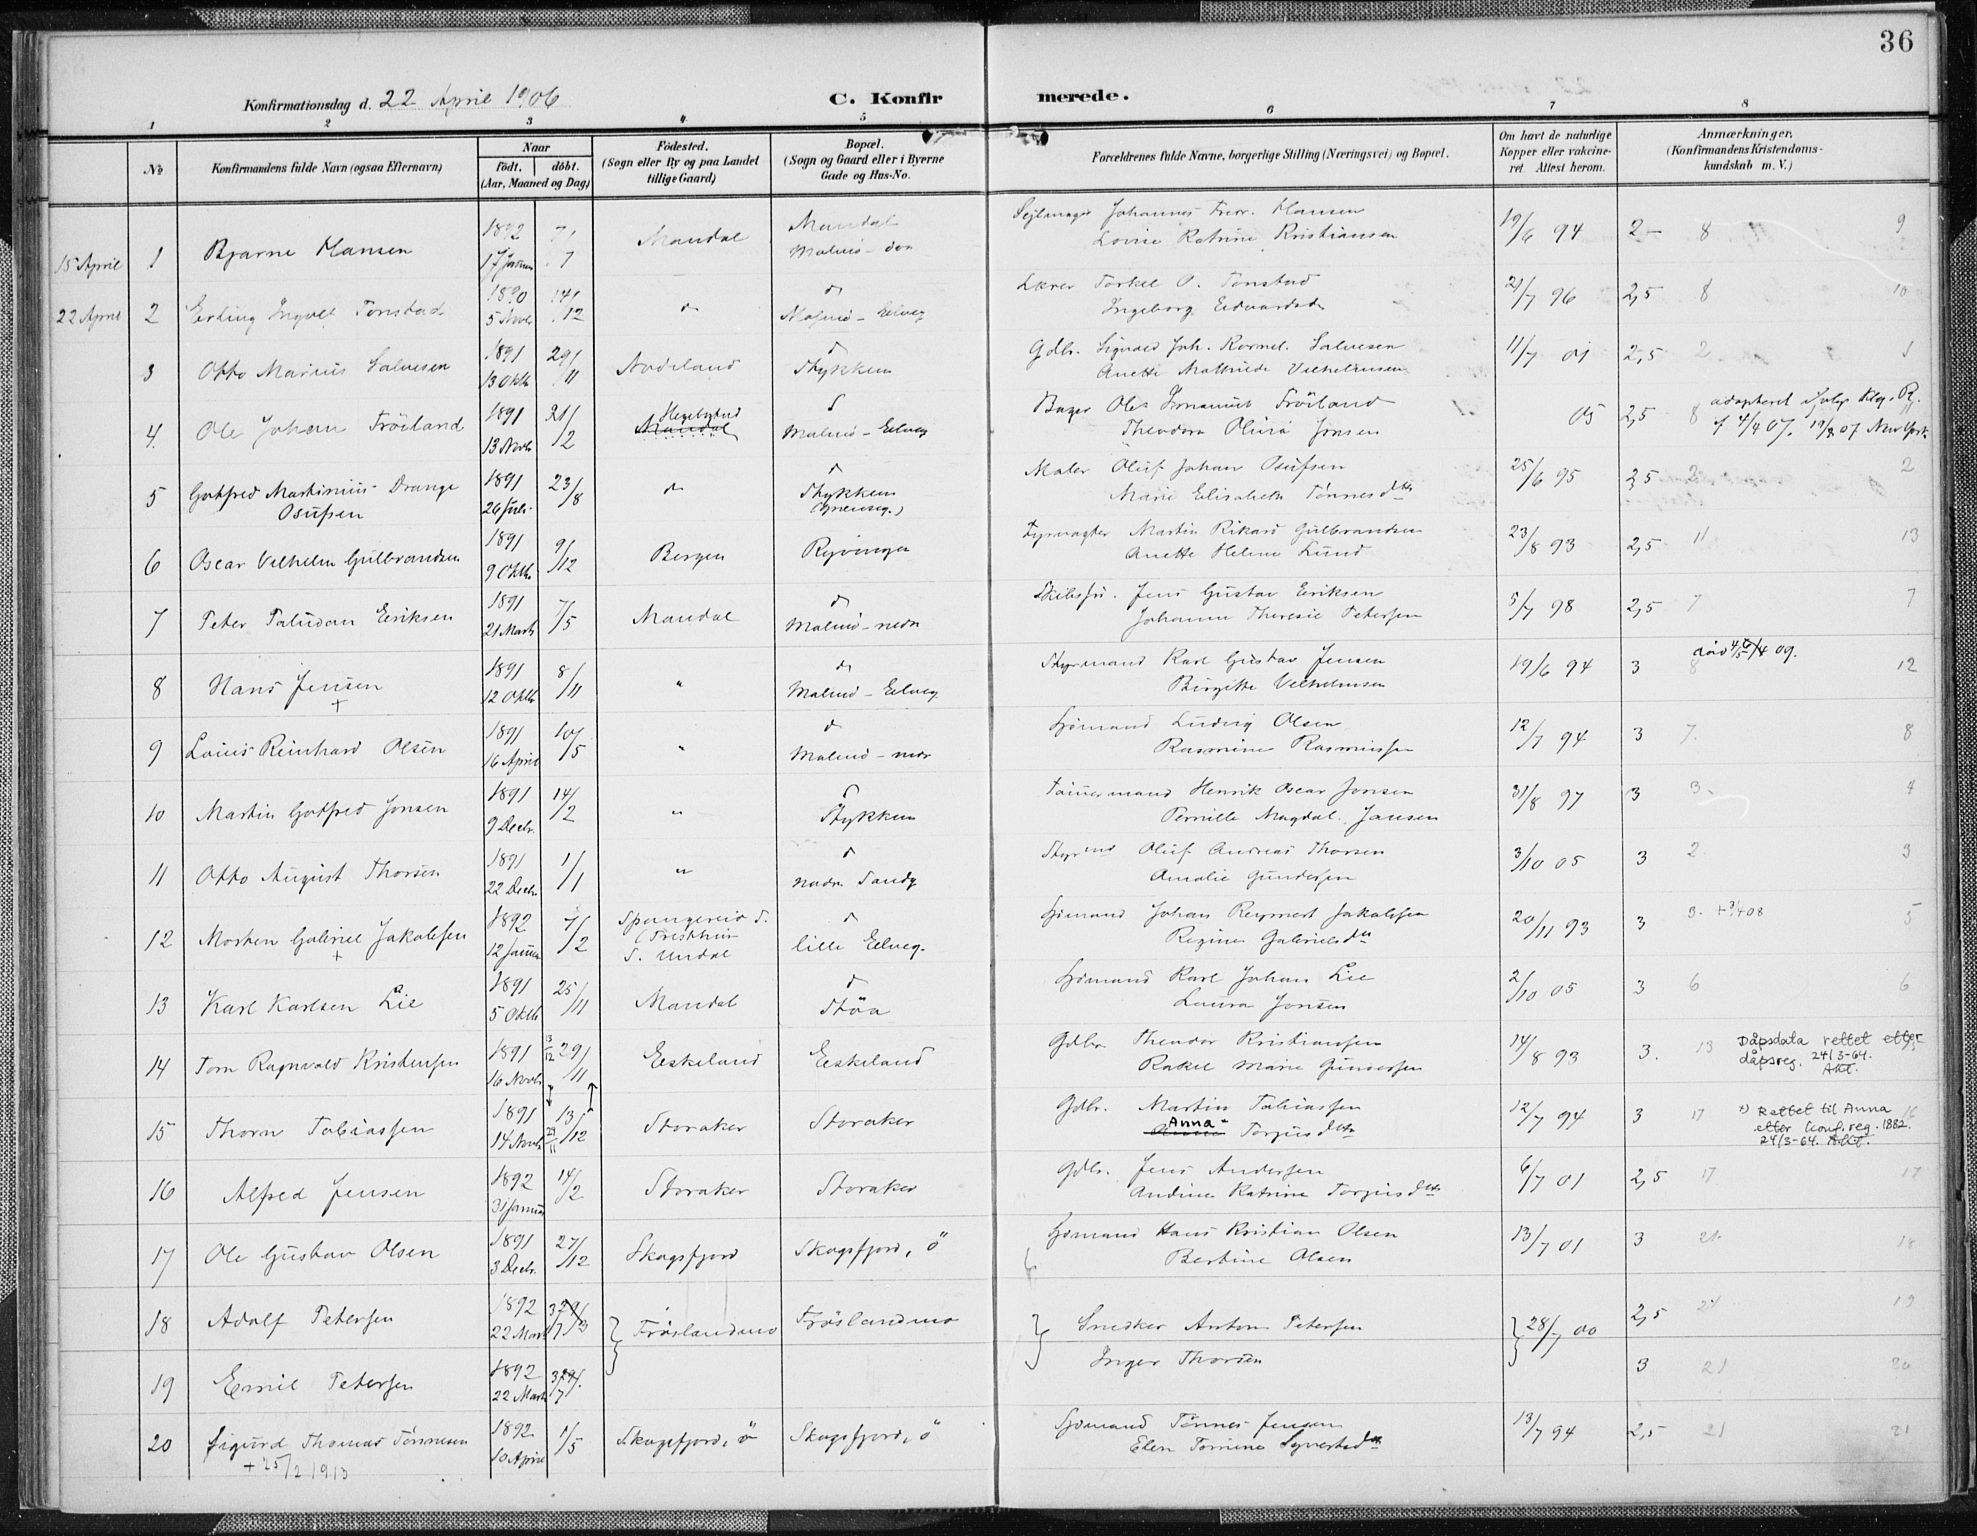 36
Konfirmationsdag d. 22 April 1906 C. Konfir merede.
1 2 3 4 5 6 7 8
No Konfirmandens fulde Navn (ogsaa Efternavn) Naar født. døbt. (Aar, Maaned og Dag) Fødested. (Sogn eller By og paa Landet tillige Gaard) Bopæl. (Sogn og Gaard eller i Byerne Gade og Hus-No. Forældrenes fulde Navne, borgerlige Stilling (Næringsvei) og Bopæl. Om havt de naturlige Kopper eller vakcineret Attest herom. Anmærkninger. (Konfirmandens Kristendomskundskab m. V.)
1892 Mandal Sejlmager Johannes Hansen 19/6 94 2- 8 9
15 April 1 Bjarne Hansen 17 Mandal Malmö Lovise Katrine Kristiansen
1890 14/12 Lærer Torkel O. Tonstad 21/7 96 2,5 8 10
22 April 2 Erling Ingvall Tonstad 5 Novb. Malmö - Eelveg Ingeborg Edvardsd.
1891 29/11 Gdbr. Sigvald Joh. Kornel. Salvesen 11/7 01 2,5 2 1
3 Otto Marius Salvesen 13 Oktb. Stykkene Anette Mathilde Vilhelmsen
1891 21/2 Bager Ole Immanuel Fröiland 05 2,5 8 adopteret ifølge Kg. R.
4 Ole Johan Fröiland 13 Novb. Mandal Malmö - Eelveg Theodora Olivia Jonsen af 4/4 07. 07 New York.
1891 23/8 Maler Oluf Johan Osufsen 25/6 95 2,5 2 2
5 Gotfred Martinius Drange 26 Juli Stykkene Marie Elisabeth Tönnesdtr
Osufsen
1891 9/12 Fyrvagter Martin Rikard Gulbrandsen 23/8 93 2,5 11 13
6 Oscar Vilhelm Gulbrandsen 9 Oktb. Bergen Ryvingen Anette Helene Lund
1891 7/5 Jens Gustav Eriksen 5/7 98 2,5 7 7
7 Peter Paludan Eriksen 21 Marts Mandal Malmö - nedr Johanne Theresie Petersen
1891 8/11 Styrmand Karl Gustav Jensen 19/6 94 3 8 12 död 09.
8 Hans Jensen + 12 Oktb. " Malmö - Eelveg Birgitte Vilhelmsen
1891 10/5 Sjömand Ludvig Olsen 12/7 94 3 7. 8
9 Louis Reinhard Olsen 16 April " Malmö - nedr Rasmine Rasmussen
1891 14/2 Tömmermand Henrik Oscar Jonsen 31/8 97 3 3. 4
10 Martin Gotfred Jonsen 9 Decb. " Stykkene Pernille Magdal. Jansen
1891 1/1 Styrmd Oluf Andreas Thorsen 3/10 05 3 2 3
11 Otto August Thorsen 22 Decb. " nedr. Sandg Amalie Gundersen
1892 7/2 Spangereid S. Sjömand Johan Reymert Jakobsen 20/11 93 3 3. + 3/4 08 5
12 Morten Gabriel Jakobsen + 12 Januar S. Undal lille Eelveg. Regine Gabrielsdtr
1891 25/11 Sjömand Karl Johan Lie 2/10 05 3 6 6
13 Karl Karlsen Lie 5 Oktb. Mandal Stöa Laura Jonsen
1891 13/12 29/11 Gdbr. Theodor Kristiansen 14/8 93 3. 13 Dåpsdata rettet etter
14 Tom Ragnvald Kristensen 16 Novb. Eeskeland Eeskeland Rakel Marie Gundersen dåpsreg. 24/3-64. Akt.
1891 13/12 Gdbr. Martin Tobiassen 12/7 94 3 17 x) Rettet til Anna 16
15 Thorn Tobiassen 14 Novb. 29/11 Storaker Storaker Anna Torjusdtr etter konf.reg. 1882.
24/3-64. Akt.
1892 14/2 Gdbr. Jens Andersen 6/7 01 2,5 17 17
16 Alfred Jensen 31 Januar Storaker Storaker Andine Katrine Torjusdtr
1891 27/12 Sjömand Hans Kristian Olsen 13/7 01 3 21 18
17 Ole Gustav Olsen 3 Decb. Skogsfjord Skogsfjord, ö Bertine Olsen
1892 2,5 21 19
18 Adolf Petersen 22 Mars Fröslandmo Fröslandmo Snedker Anton Petersen 28/7 00
1892 Inger Thorsen 3 21 20
19 Emil Petersen 22 Marts
1892 1/5 Sjömand Tönnes Jensen 13/7 94 2,5 21 21
20 Sigurd Thomas Tönnesen 10 April Skogsfjord, ö Skogsfjord, ö Elen Tomine Syvertsdtr
+ 25/2 1913